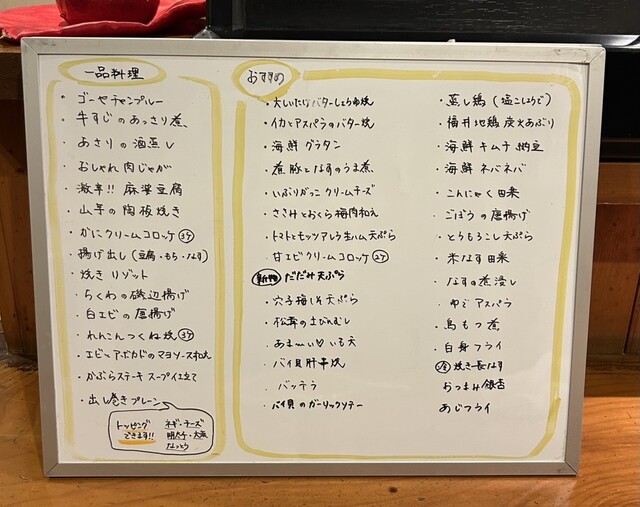 一品料理
・ゴーヤチャンプルー
・牛すじのあっさり煮
・あさりの酒蒸し
・おしゃれ肉じゃが
・激辛!! 麻婆豆腐
・山芋の陶板焼き
・かにクリームコロッケ ③ケ
・揚げ出し（豆腐・もち・なす）
・焼きリゾット
・ちくわの磯辺揚げ
・白エビの唐揚げ
・れんこんつくね焼 ③ケ
・エビとアボカドのマヨソース和え
・かぶらステーキ スープ仕立て
・出し巻きプレーン
トッピングできます!!
ネギ・チーズ
明太子・大葉
なっとう
おすすめ
・大しいたけバターしょうゆ焼
・イカとアスパラのバター焼
・海鮮グラタン
・煮豚となすのうま煮
・いぶりがっこクリームチーズ
・ささみとおくら梅肉和え
・トマトとモッツァレラ生ハム天ぷら
・甘エビクリームコロッケ ②ケ
・だだみ天ぷら
・穴子梅しそ天ぷら
・松茸の土びんむし
・あま〜い♡いも天
・バイ貝肝串焼
・バッテラ
・バイ貝のガーリックソテー
・蒸し鶏（塩こしょうで）
・福井地鶏炭火あぶり
・海鮮キムチ納豆
・海鮮ネバネバ
・こんにゃく田楽
・ごぼうの唐揚げ
・とうもろこし天ぷら
・米なす田楽
・なすの煮浸し
・ゆでアスパラ
・鳥もつ煮
・白身フライ
・冷 焼き長なす
・おつまみ銀杏
・あじフライ